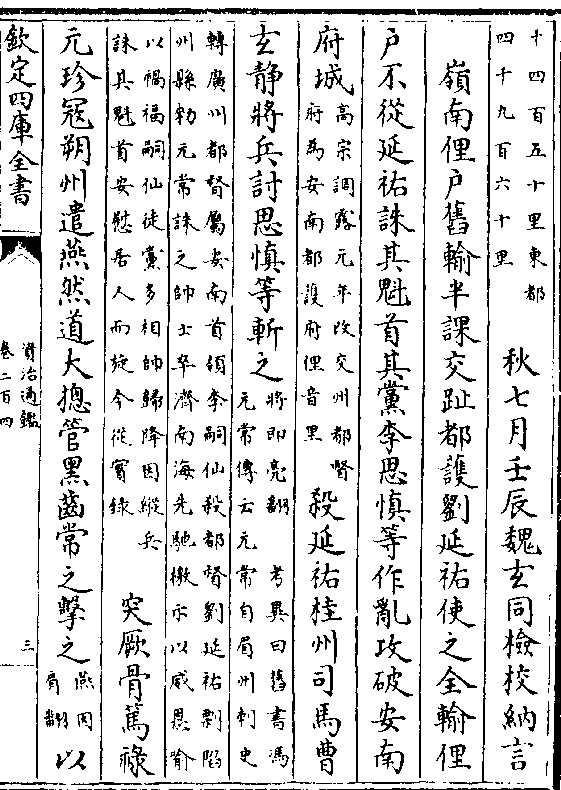 十四百五十里東都
四十九百六十里
秋七月壬辰魏玄同檢校納言
嶺南俚户舊輸半課交趾都護劉延祐使之全輸俚
户不從延祐誅其魁首其黨李思慎等作亂攻破安南
府城
高宗調露元年改交州都督
府為安南都護府俚音里
殺延祐桂州司馬曹
玄静將兵討思慎等斬之
將即亮翻 考異曰舊書馮
元常傳云元常自眉州刺史
轉廣州都督屬安南首領李嗣仙殺都督劉延祐剽陷
州縣勅元常誅之帥士卒濟南海先馳檄示以威恩喻
以禍福嗣仙徒黨多相帥歸降因縱兵
誅其魁首安慰居人而旋今從實録
突厥骨篤禄
元珍寇朔州遣燕然道大摠管黑齒常之擊之
燕因
肩翻
以
欽定四庫全書
資治通鑑
卷二百四
三